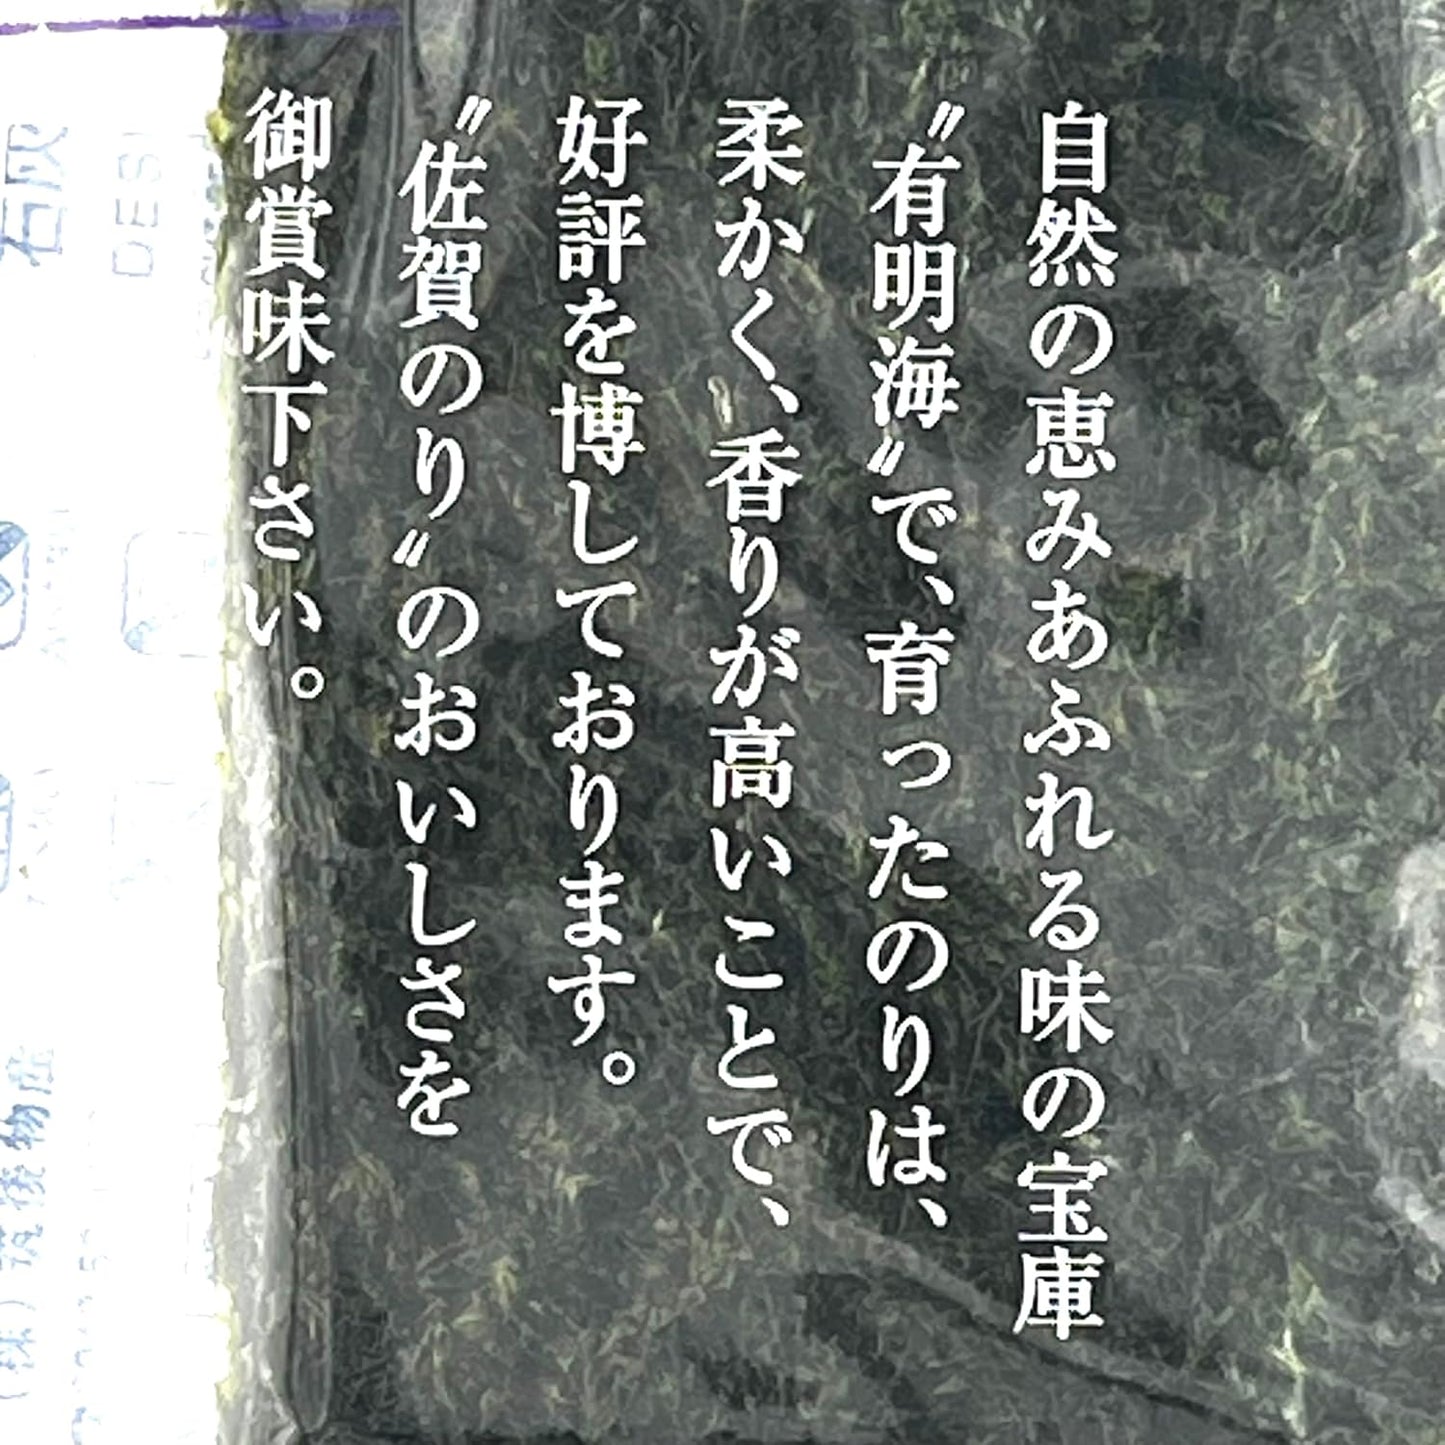 自然の恵みあふれる味の宝庫
〝有明海〟で、育ったのりは、
柔かく、香りが高いことで、
好評を博しております。
〝佐賀のり〟のおいしさを
御賞味下さい。
石灰
DESI